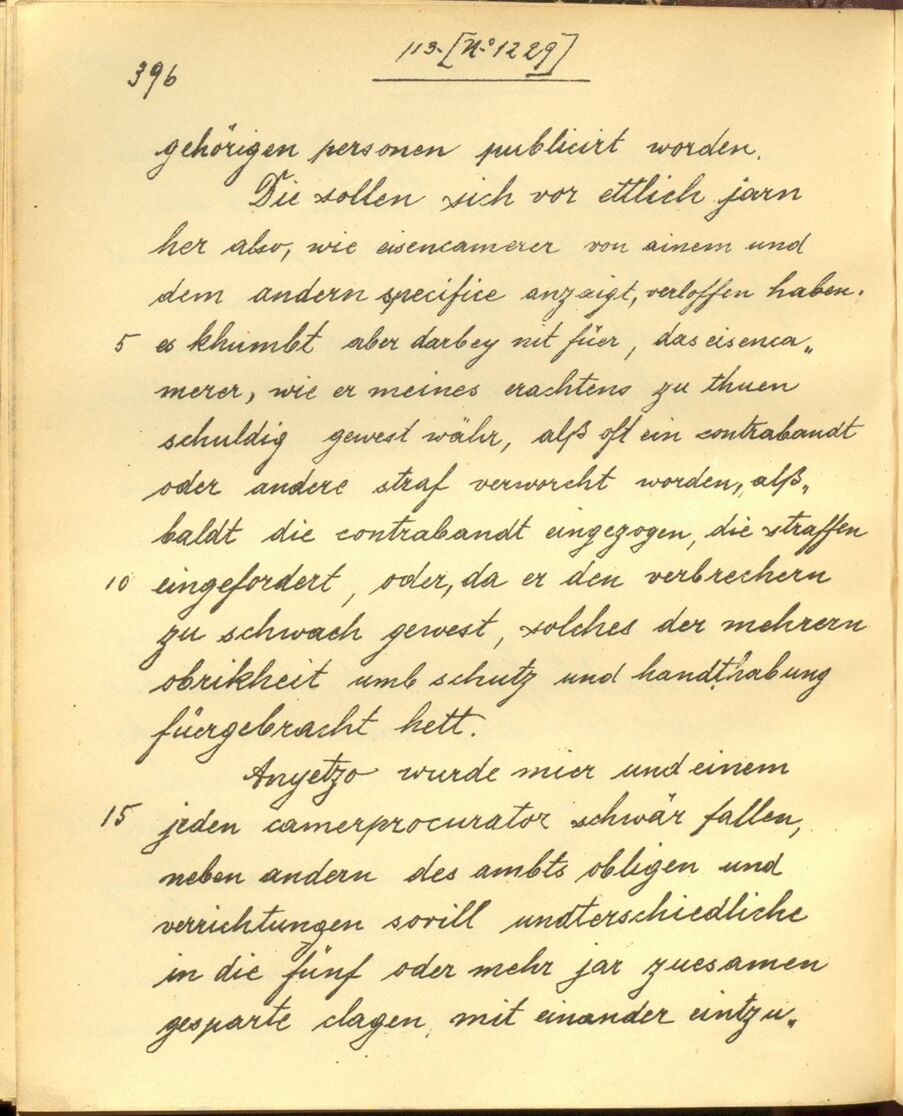 113. [No. 1229]
396
gehörigen personen publicirt worden.
Die sollen sich vor ettlich jarn
her also, wie eisencamerer von ainem und
dem andern specifice anzaigt, verloffen haben.
5 es khumbt aber darbey nit füer, das eisenca„
merer, wie er meines erachtens zu thuen
schuldig gewest währ, alß oft ein contrabandt
oder andere straf verworcht worden, alß„
baldt die contrabandt eingezogen, die straffen
10 eingefordert, oder, da er den verbrechern
zu schwach gewest, solches der mehrern
obrikheit umb schutz und handthabung
füergebracht hett.
Anyetzo wurde mier und einem
15 jeden camerprocurator schwär fallen,
neben andern des ambts obligen und
verrichtungen sovill undterschiedliche
in die fünf oder mehr jar zuesamen
gesparte clagen mit einander eintzu„